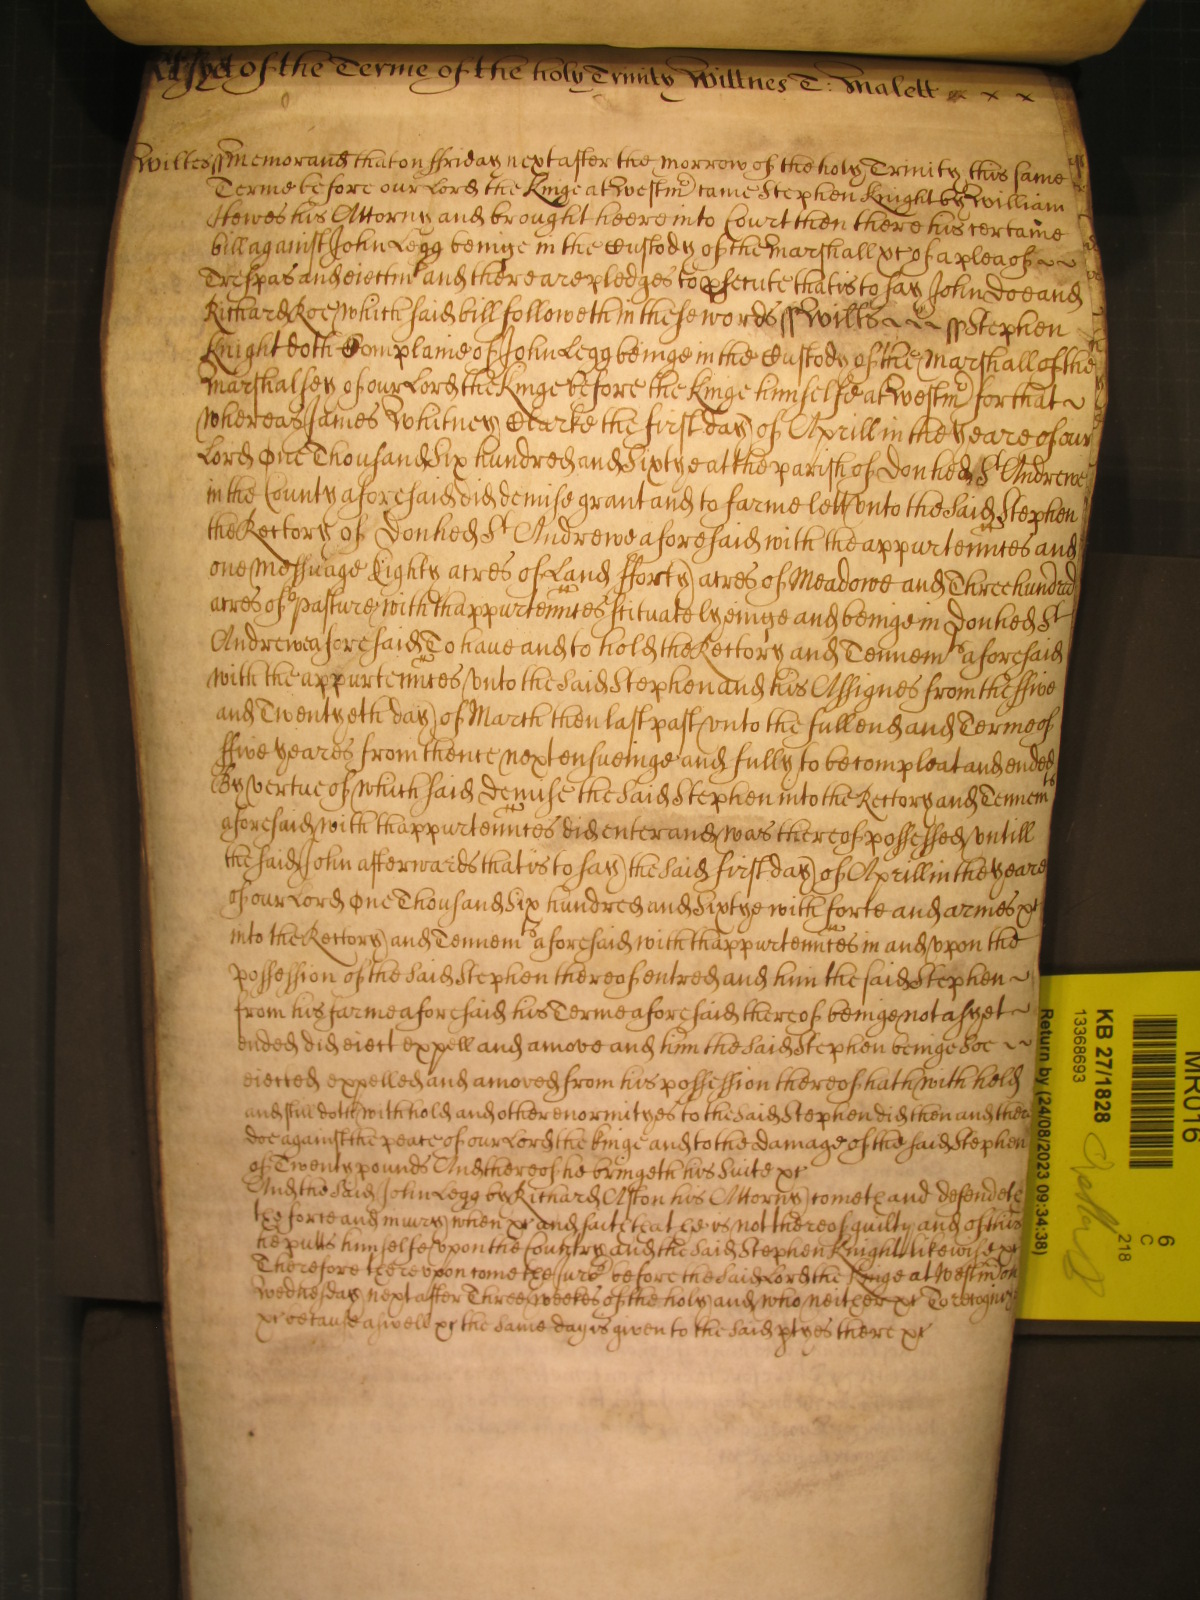 As yet of the Terme of the holy Trinity Wittnes T: Malett x x x
Wiltes ss Memorand that on ffriday next after the morrow of the holy Trinity this same
Terme before our Lord the Kinge at Westm came Stephen Knight by William
his Attorny and brought heere into Court then there his certaine
bill against John Legg beinge in the Custody of the Marshall xc of a plea of ~ ~
Trespas and eiectmt and there are pledges to psecute that is to say John Doe and
Richard Roe which said bill followeth in these words ss Wilts ~ ~ ~ ss Stephen
Knight doth Complaine of John Legg beinge in the Custody of the Marshall of the
Marshalsey of our Lord the Kinge before the Kinge himselfe at Westm for that ~
whereas James Whitney Clarke the first day of Aprill in the yeare of our
Lord One Thousand Six hundred and Sixtye at the parish of Donhed St Andrewe
in the County aforesaid did demise grant and to farme lett unto the said Stephen
the Rectory of Donhed St Andrewe aforesaid with the appurtennces and
one Messuage Eighty acres of Land fforty acres of Meadowe and Three hundred
acres of pasture with thappurtennces scituate lyeinge and beinge in Donhed St
Andrewe aforesaid To haue and to hold the Rectory and Tennemts aforesaid
with the appurtennces unto the said Stephen and his Assignes from the ffive
and Twentyeth day of March then last past unto the full end and Terme of
ffive yeares from thence next ensueinge and fully to be compleat and ended
By vertue of which said demise the said Stephen into the Rectory and Tennemts
aforesaid with thappurtennces did enter and was thereof possessed untill
the said John afterwards that is to say the said first day of Aprill in the yeare
of our Lord One Thousand Six hundred and Sixtye with force and armes xc
into the Rectory and Tennemts aforesaid with thappurtennces in and upon the
possession of the said Stephen thereof entred and him the said Stephen ~
from his farme aforesaid his Terme aforesaid thereof beinge not as yet ~
ended did eiect expell and amove and him the said Stephen beinge soe ~ ~
eiected expelled and amoved from his possession thereof hath with held
and still doth with hold and other enormityes to the said Stephen did then and there
doe against the peace of our Lord the Kinge and to the damage of the said Stephen
of Twenty pounds And thereof he bringeth his Suite xc
And the said John Legg by Richard Aston his Attorny cometh and defendeth
the force and iniury when xc and saith that he is not thereof guilty and of this
he putts himselfe upon the Country and the said Stephen Knight likewise xc
Therefore thereupon come the Jury before the said Lord the Kinge at Westm on
Wednesday next after Three weekes of the holy and who neither xc To recognize
xc because aswell xc the same day is given to the said ptyes there xc
MR016
6
C
218
KB 27/1828
13368693
Return by (24/08/2023 09:34:38)